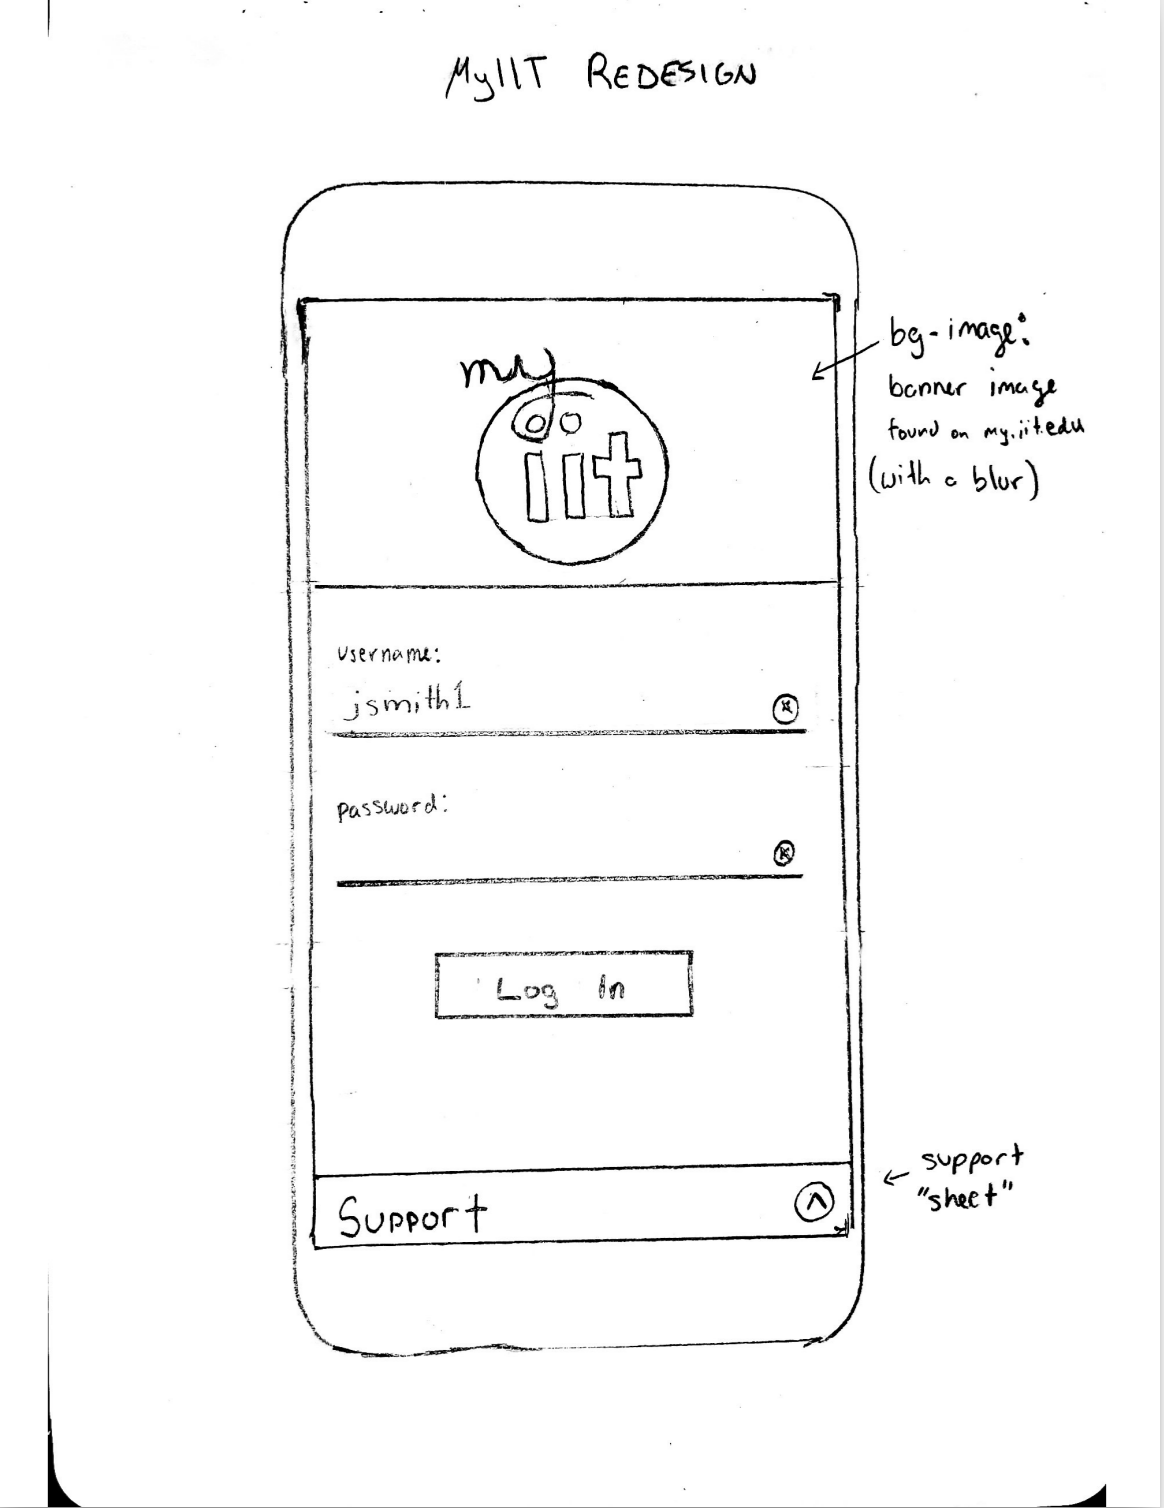 MyIIT REDESIGN
my
iit
bg-image:
banner image
found on my.iit.edu
(with a blur)
username:
jsmith1
password:
Log In
support
"sheet"
Support